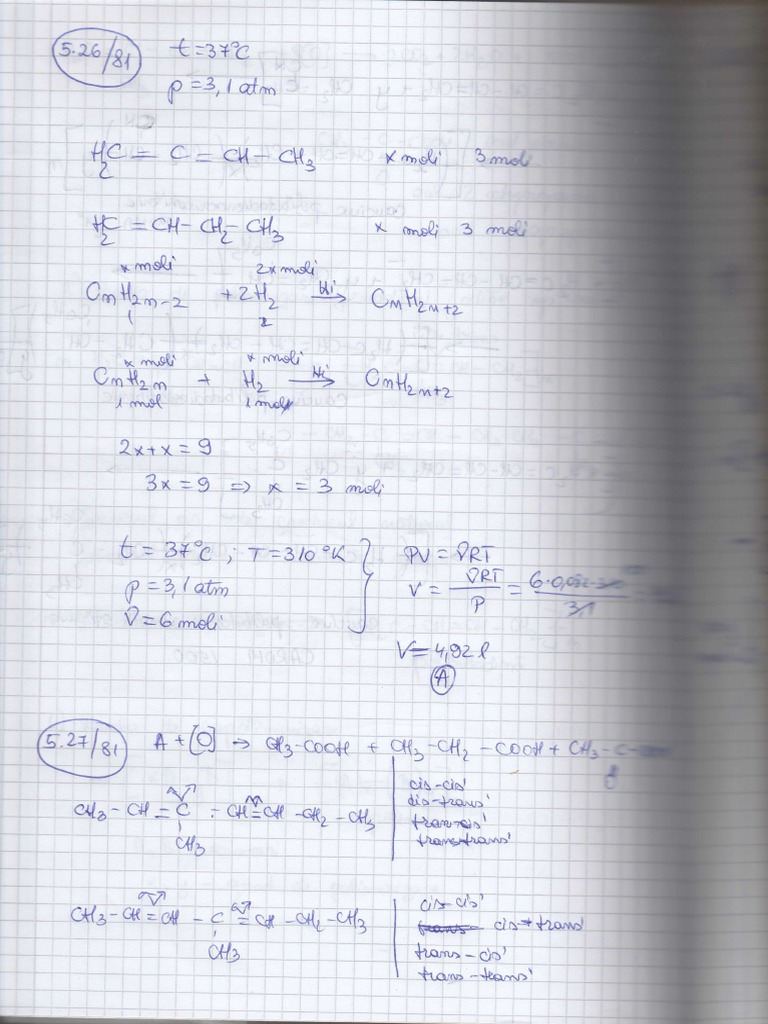 5.26/81 t = 37°C
p = 3,1 atm
H2C = C = CH - CH3 x moli 3 moli
H2C = CH - CH2 - CH3 x moli 3 moli
x moli 2x moli
CnH2n-2 + 2H2 Ni→ CnH2n+2
1 2
x moli x moli
CnH2n + H2 Ni→ CnH2n+2
1 mol 1 mol
2x + x = 9
3x = 9 => x = 3 moli
t = 37°C ; T = 310°K PV = νRT
p = 3,1 atm V = νRT/P = 6·0,082·
ν = 6 moli
V = 4,92 l
A
5.27/81 A + [O] → CH3-COOH + CH3-CH2-COOH + CH3-C-
CH3 - CH = C - CH = CH - CH2 - CH3
CH3
cis-cis'
cis-trans'
trans-cis'
trans-trans'
CH3 - CH = CH - C = CH - CH2 - CH3
CH3
cis-cis'
trans cis-trans'
trans-cis'
trans-trans'